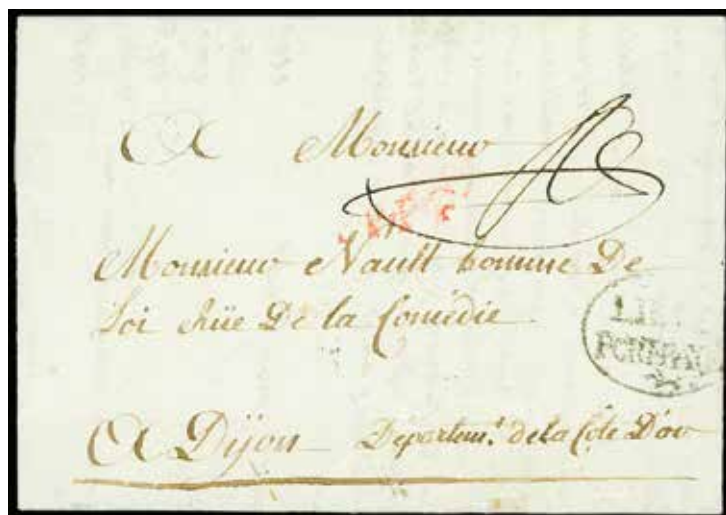 A Monsieur
Monsieur Nault homme De
Loi Rüe De la Comédie
PORT PAYÉ
A Dijon Departem.t de la Côte D'or